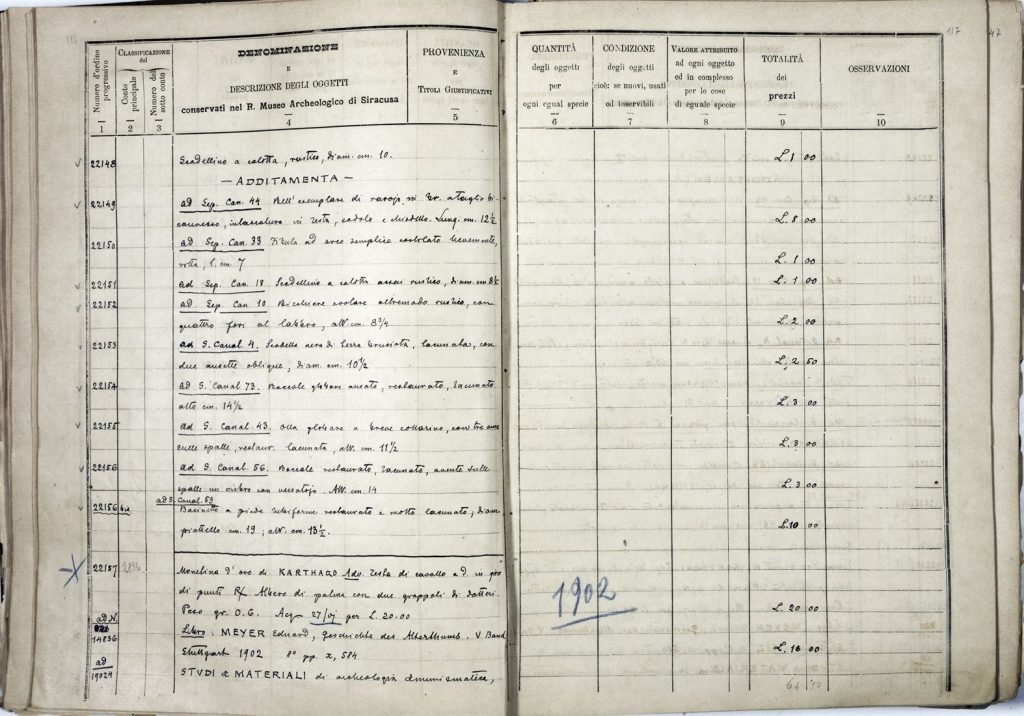 117 47
Numero d'ordine progressivo
CLASSIFICAZIONE del
Conto principale
Numero del sotto conto
DENOMINAZIONE
E
DESCRIZIONE DEGLI OGGETTI
conservati nel R. Museo Archeologico di Siracusa
PROVENIENZA
E
TITOLI GIUSTIFICATIVI
QUANTITÀ
degli oggetti
per
ogni egual specie
CONDIZIONE
degli oggetti
cioè: se nuovi, usati
od inservibili
VALORE ATTRIBUITO
ad ogni oggetto
ed in complesso
per le cose
di eguale specie
TOTALITÀ
dei
prezzi
OSSERVAZIONI
1 2 3 4 5 6 7 8 9 10
22148 Scodellino a calotta, rustico, diam. cm. 10. L. 1 00
— ADDITAMENTA —
22149 ad Sep. Can. 44 Bell'esemplare di rasojo in br. a taglio bi
convesso, incassatura in testa, codolo e chiodetto. Lung. cm. 12 ½ L. 8 00
22150 ad Sep. Can. 33 Fibula ad arco semplice costolato lievemente,
rotta, l. cm. 7 L. 1 00
22151 ad Sep. Can. 18 Scodellino a calotta assai rustico, diam. cm 8½ L. 1 00
22152 ad Sep. Can. 10 Bicchiere ovolare oltremodo rustico, con
quattro fori al labbro, alt. cm. 8¾ L. 2 00
22153 ad S. Canal. 4. Scodella nera di terra bruciata, lacunata, con
due ansette oblique, diam. cm. 10½ L. 2 50
22154 ad S. Canal 73. Boccale globare ansato, restaurato, lacunato
alto cm. 14½ L. 3 00
22155 ad S. Canal. 43. olla globare a breve collarino, con tre anse
sulle spalle, restaur. lacunata, alt. cm. 11½ L. 3 00
22156 ad S. Canal. 56. Boccale restaurato, lacunato, avente sulle
spalle un cribro con versatojo. Alt. cm. 14 L. 3 00
ad S. Canal. 59
22156 bis Bacinetto a piede tubiforme restaurato e molto lacunato, diam
piattello cm. 19, alt. cm. 13½. L. 10 00
22157 Monetina d'oro di KARTHAGO Adv. testa di cavallo a d. in giro
di punti R/ Albero di palma con due grappoli di datteri.
1902
Peso gr. 0.6. Acq. per L. 20.00 L. 20 00
ad N.
14836 Libro. MEYER Eduard, Geschichte des Alterthums. V Band
Stuttgart 1902 8° pp. X, 584 L. 16 00
ad
19024 STUDI e MATERIALI di archeologia e numismatica,
64 50